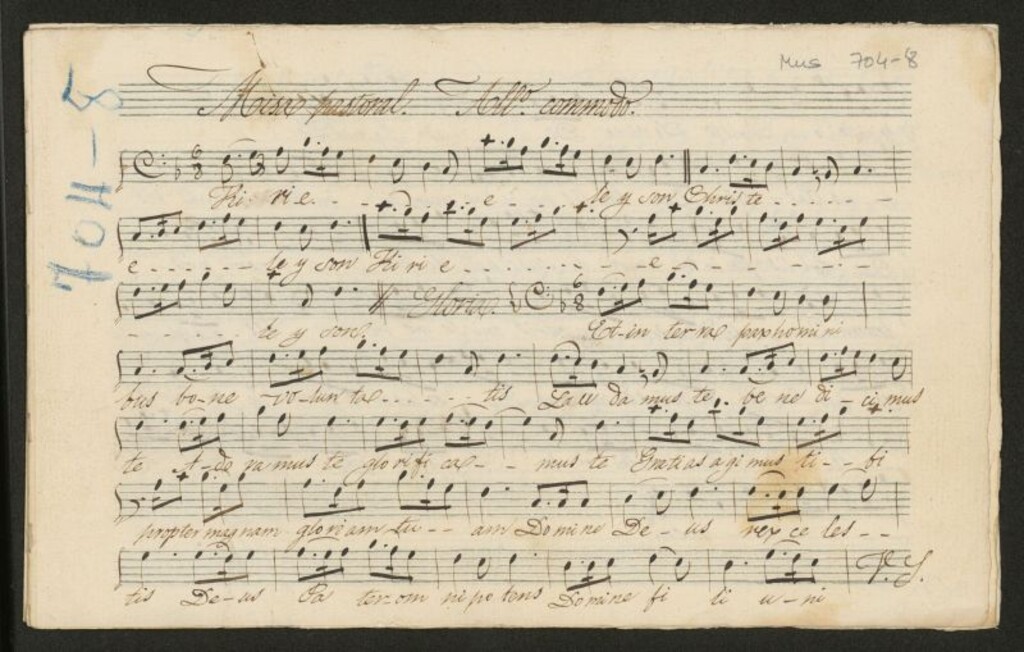 Mus 704-8
704-8
Misa pastoral. All.º commodo.
Ki ri e. - - - - - - e - - - - le y son Christe - - - - -
e - - - - - - le y son Ki ri e - - - - - - - e - - - - - -
- - - - - le y son. Gloria. Et in terra pax homini
bus bo-ne vo-lun ta - - - - - tis Lau da mus te. be ne di-ci mus
te A-do ra mus te glo ri fi ca - - - mus te Gratias agi mus ti - - bi
propter magnam gloriam tu - - am Domine De-us rex ce les - -
tis De-us Pa ter om ni po tens Domine fi li u-ni
V. S.